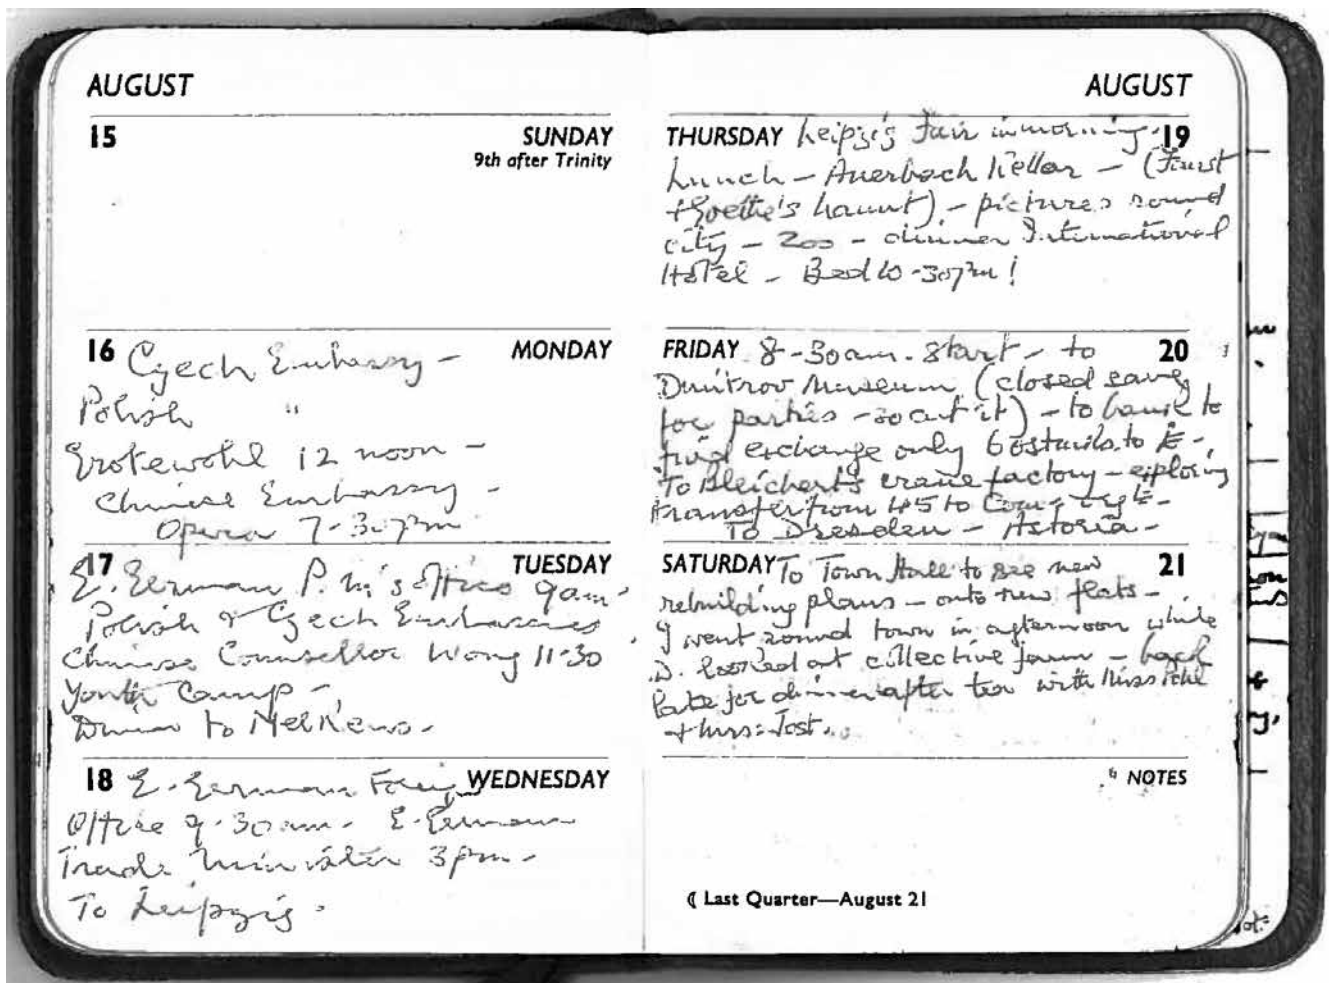 AUGUST
15 SUNDAY
9th after Trinity
16 MONDAY
Czech Embassy -
Polish "
Grotewohl 12 noon -
Chinese Embassy -
Opera 7-30pm
17 TUESDAY
E. German P.M's Office 9am
Polish & Czech Embassies
Chinese Counsellor Wong 11-30
Youth Camp -
Drive to
18 WEDNESDAY
E. German Foreign
Office 9-30am - E. German
Trade Minister 3pm -
To Leipzig.
AUGUST
THURSDAY 19
Leipzig Fair in morning.
Lunch - Auerbach Keller - (Faust
+ Goethe's haunt) - pictures round
city - Zoo - dinner International
Hotel - Bed 10-30pm!
FRIDAY 20
8-30am. start - to
Dmitrov Museum (closed save
for parties - so cut it) - to bank to
find exchange only 6 ostmks. to £ -
To Bleichert's crane factory - exploring
transfer from 45 to
To Dresden - Astoria -
SATURDAY 21
To Town Hall to see new
rebuilding plans - onto new flats -
I went round town in afternoon while
D. looked at collective farm - back
late for dinner after tea with Miss
+ Mrs. Jost.
NOTES
☾ Last Quarter—August 21